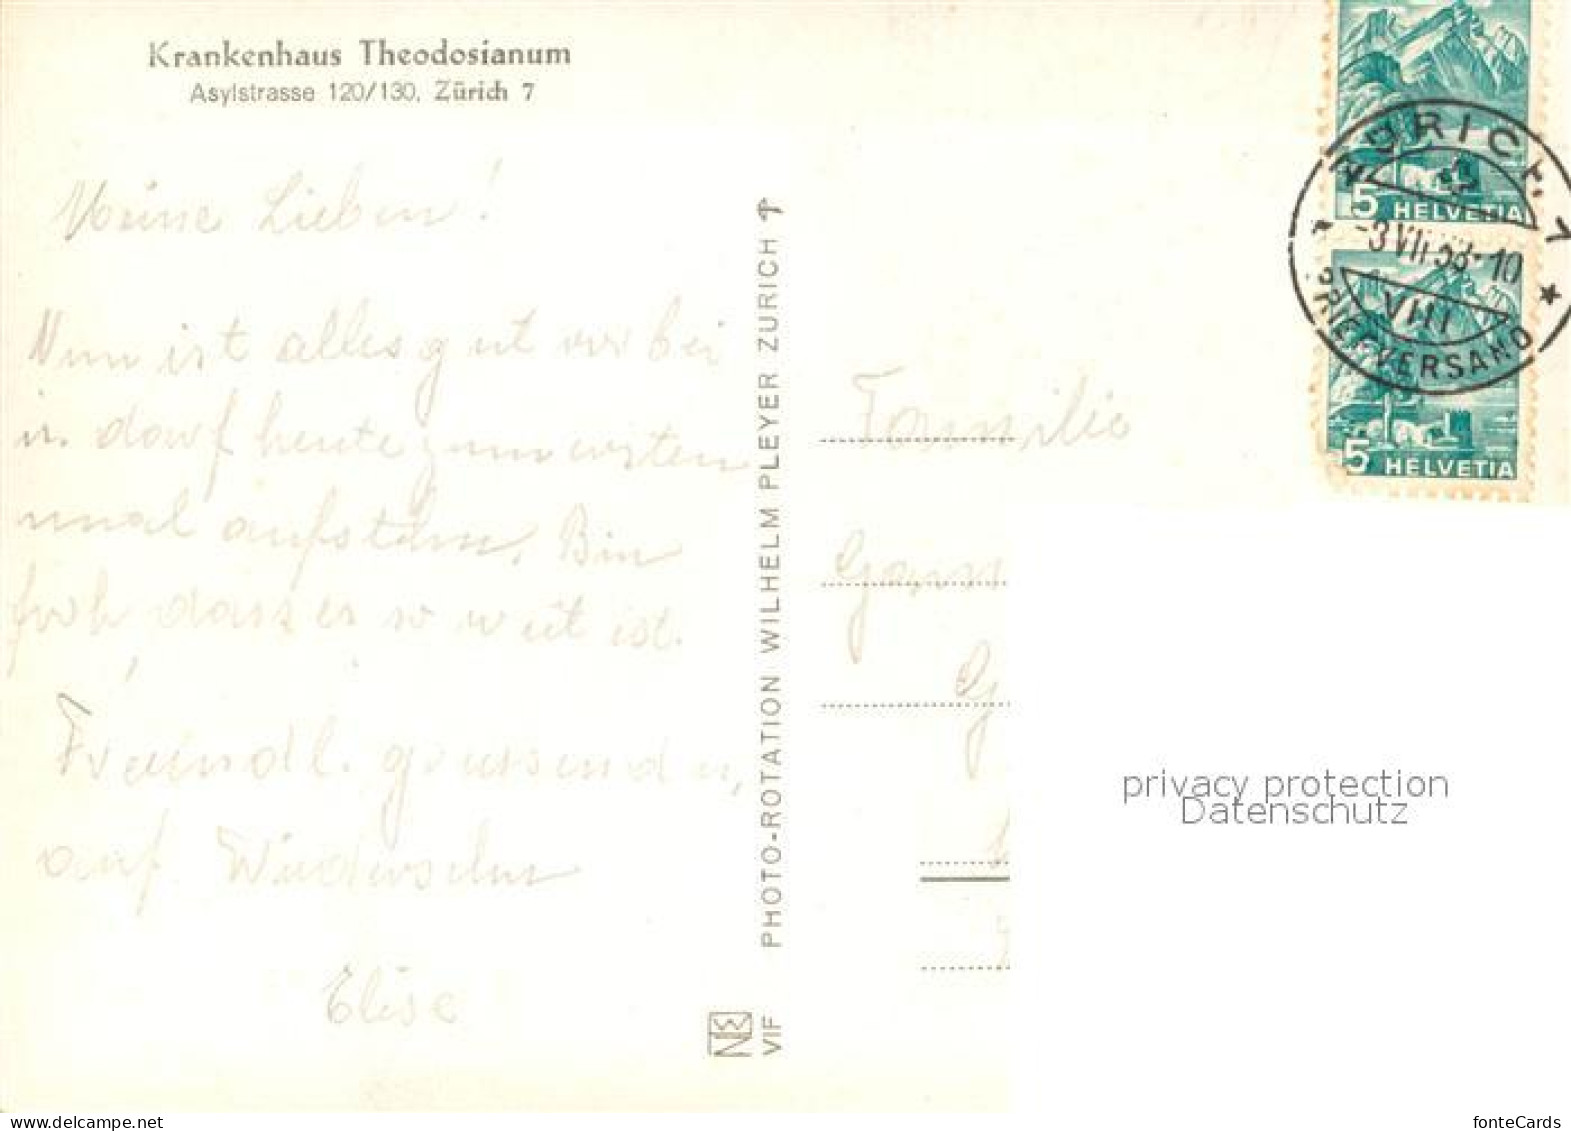 Krankenhaus Theodosianum
Asylstrasse 120/130, Zürich 7
Meine Lieben!
Nun ist alles gut vorbei
u. darf heute zum ersten
mal aufstehen. Bin
froh dass es so weit ist.
Freundl. grüssend u,
auf Wiedersehn
Elise
PHOTO-ROTATION WILHELM PLEYER ZURICH
VIF
5 HELVETIA
5 HELVETIA
ZÜRICH 7
-3.VII.53-10
VIII
BRIEFVERSAND
Familie
privacy protection
Datenschutz
delcampe.net
fonteCards